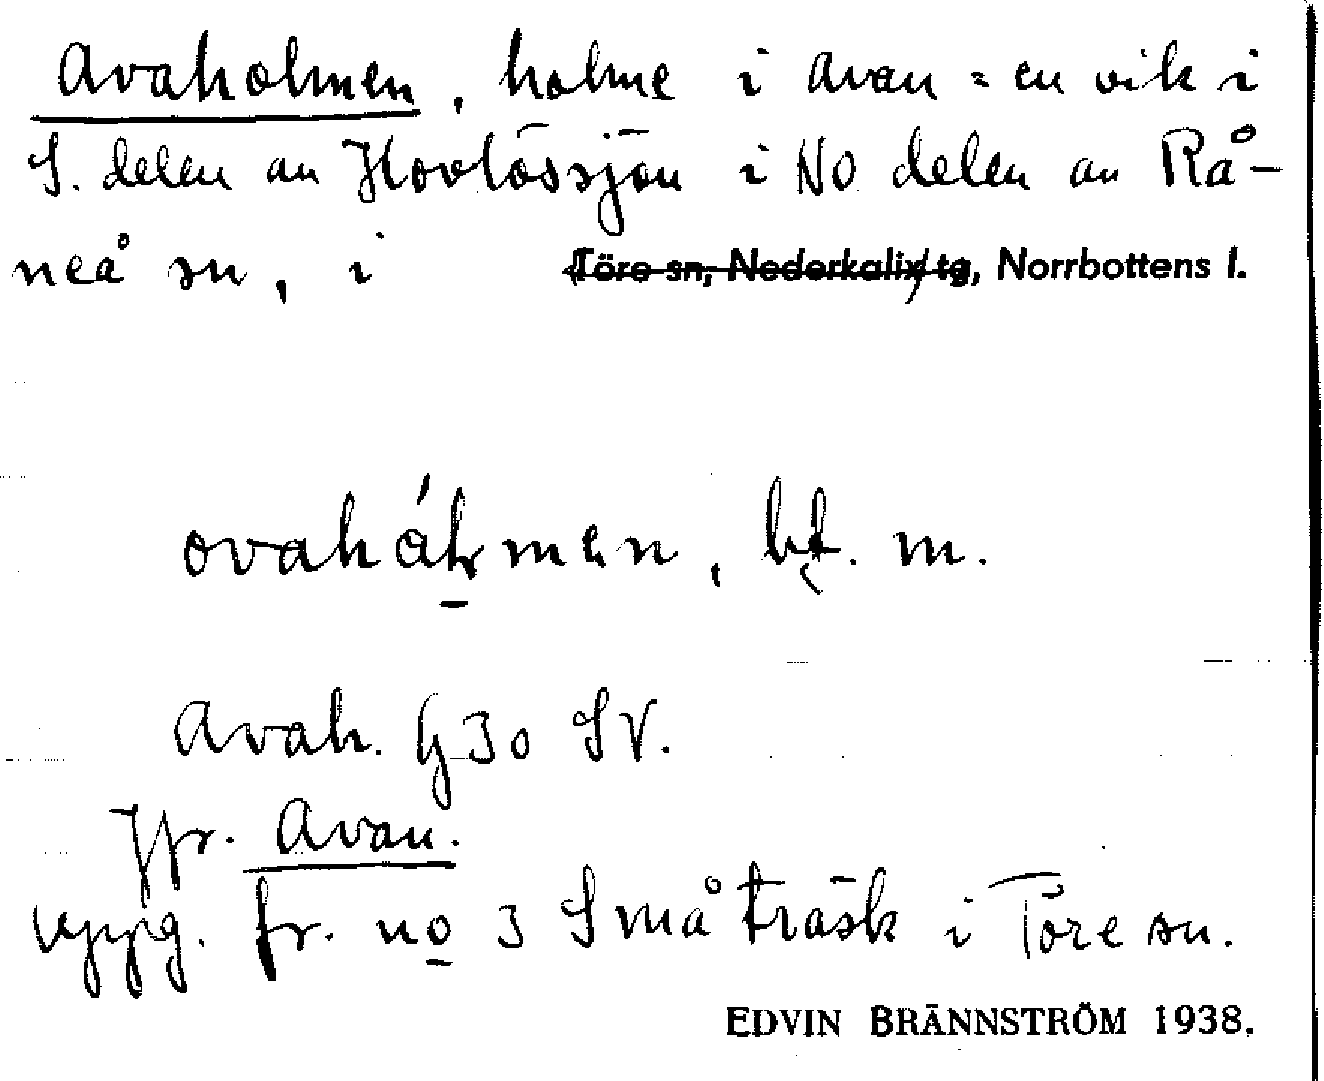 Avaholmen, holme i Avan = en vik i
S. delen av Hovlössjön i NO delen av Rå-
neå sn, i Töre sn, Nederkalix tg, Norrbottens l.
ovahålmen, m.
Avah. G 30 SV.
Jfr. Avan.
uppg. fr. no 3 Småträsk i Töre sn.
EDVIN BRÄNNSTRÖM 1938.